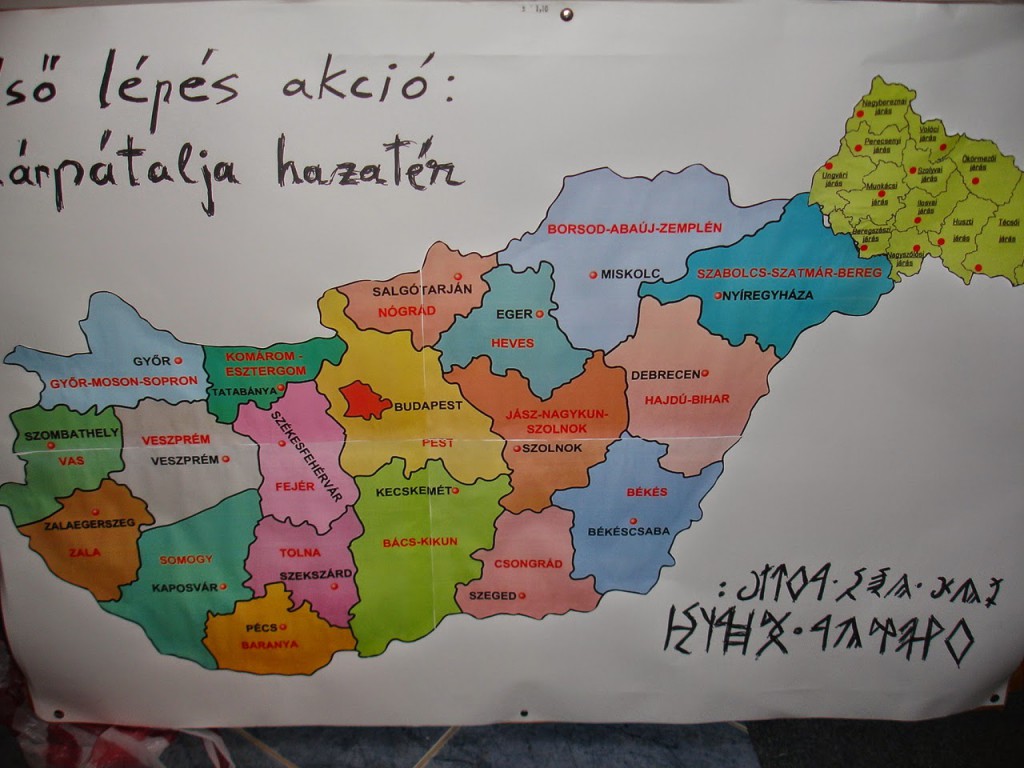 ső lépés akció:
árpátalja hazatér
Nagybereznai
járás
Perecsenyi
járás
Volóci
járás
Ökörmezői
járás
Ungvári
járás
Munkácsi
járás
Szolyvai
járás
Ilosvai
járás
Huszti
járás
Técsői
járás
Beregszászi
járás
Nagyszőlősi
járás
BORSOD-ABAÚJ-ZEMPLÉN
MISKOLC
SZABOLCS-SZATMÁR-BEREG
NYÍREGYHÁZA
SALGÓTARJÁN
NÓGRÁD
EGER
HEVES
GYŐR
GYŐR-MOSON-SOPRON
KOMÁROM -
ESZTERGOM
TATABÁNYA
BUDAPEST
PEST
DEBRECEN
HAJDÚ-BIHAR
JÁSZ-NAGYKUN-
SZOLNOK
SZOLNOK
SZOMBATHELY
VAS
VESZPRÉM
VESZPRÉM
SZÉKESFEHÉRVÁR
FEJÉR
KECSKEMÉT
BÁCS-KIKUN
BÉKÉS
BÉKÉSCSABA
ZALAEGERSZEG
ZALA
SOMOGY
KAPOSVÁR
TOLNA
SZEKSZÁRD
CSONGRÁD
SZEGED
PÉCS
BARANYA